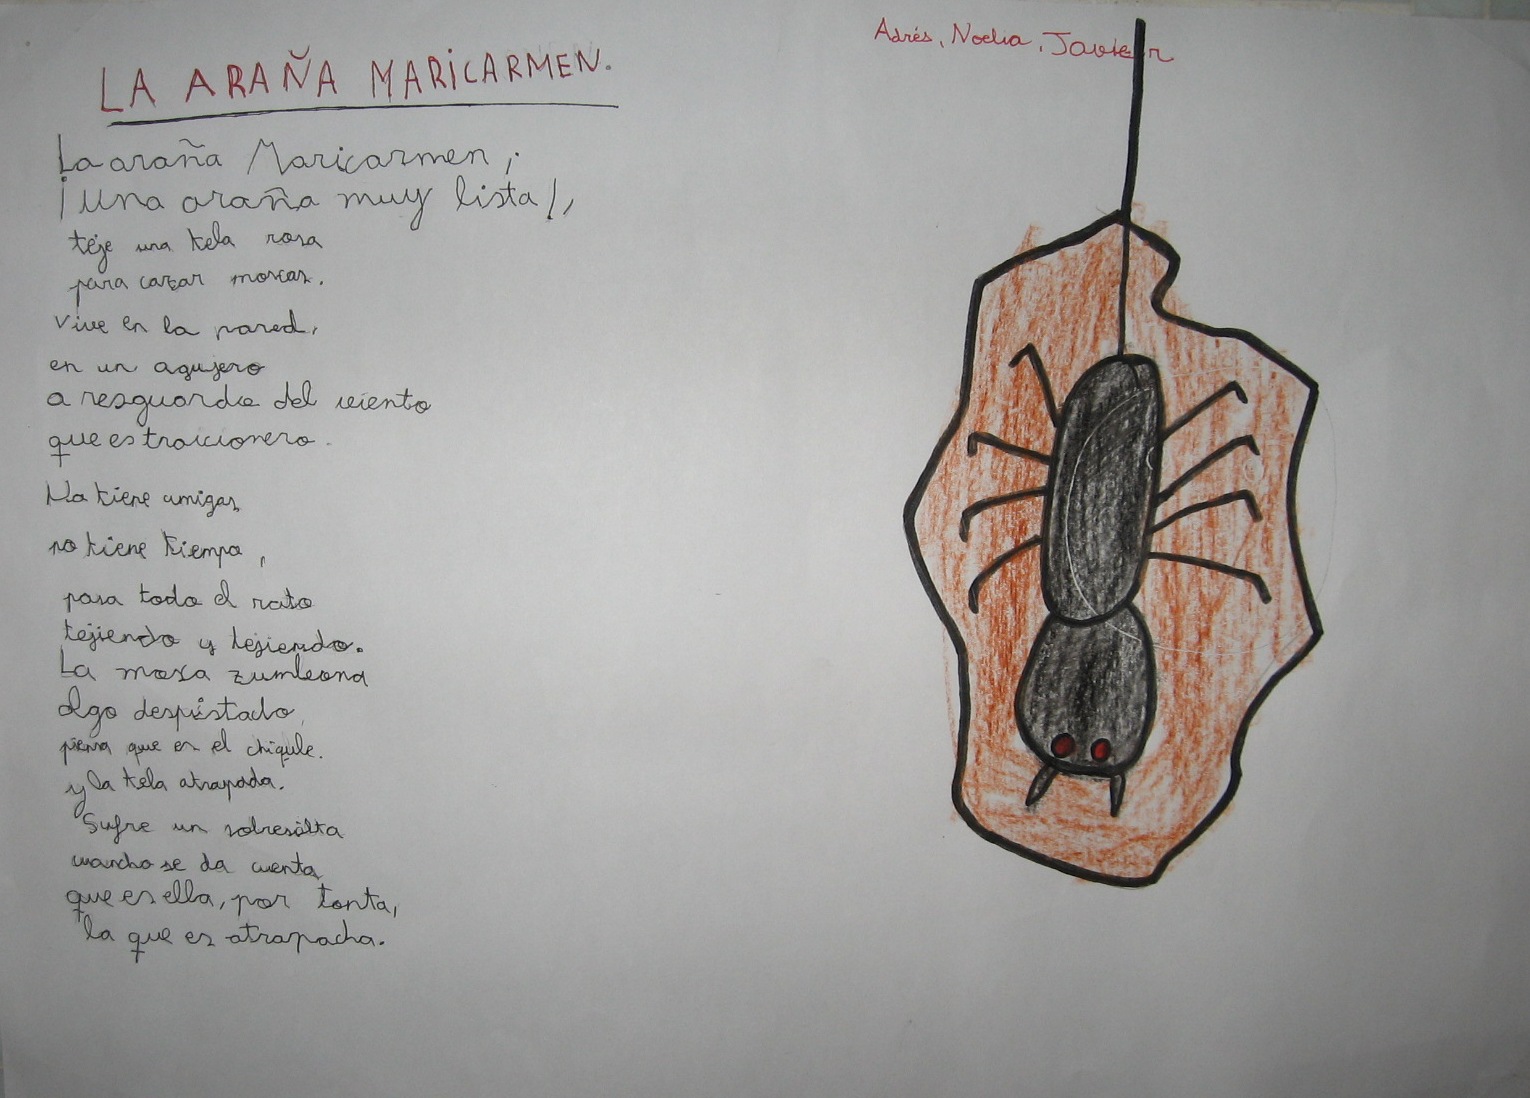 LA ARAÑA MARICARMEN.
Adrés, Noelia, Javier
La araña Maricarmen,
¡Una araña muy lista!,
teje una tela rosa
para cazar moscas.
Vive en la pared,
en un agujero
a resguardo del viento
que es traicionero.
No tiene amigas,
no tiene tiempo,
pasa todo el rato
tejiendo y tejiendo.
La mosca zumbona
algo despistado,
piensa que es el chiqule.
y la tela atrapada.
Sufre un sobresalta
cuancho se da cuenta
que es ella, por tonta,
la que es atrapacha.